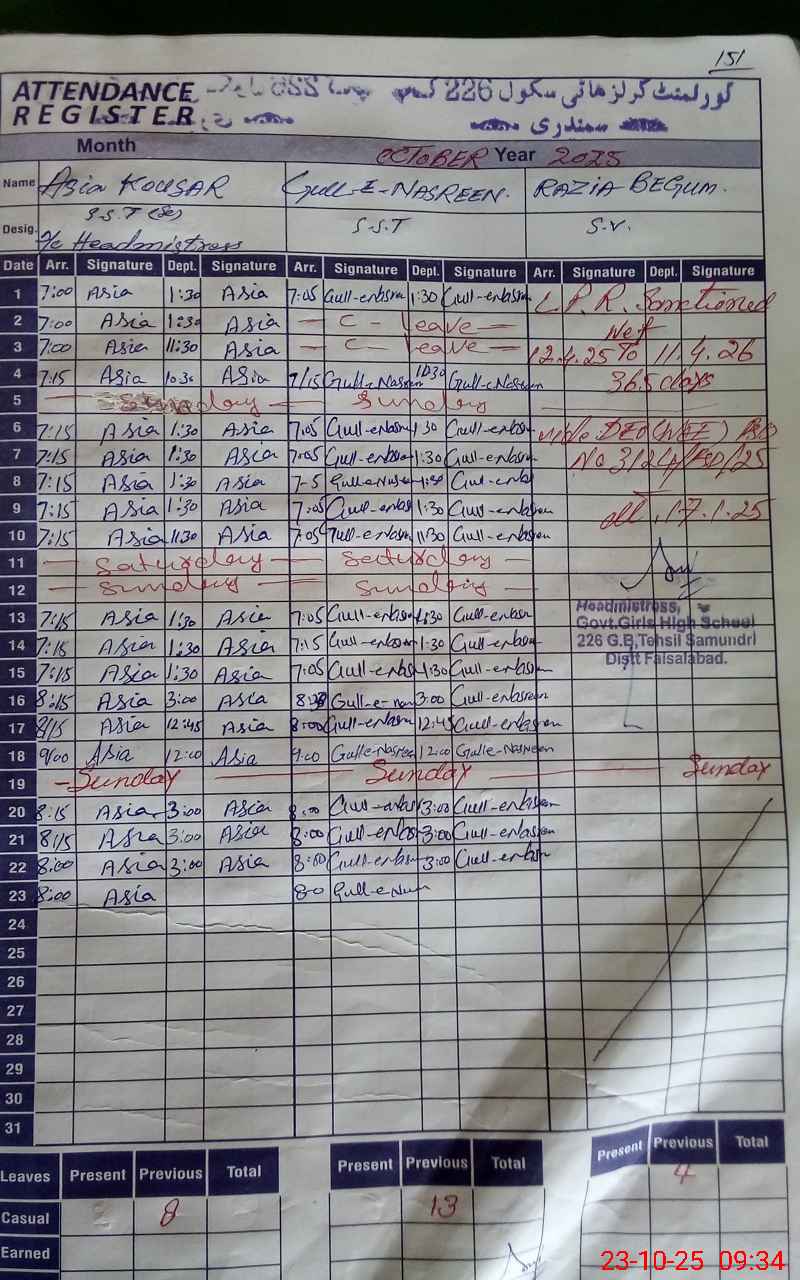 151
ATTENDANCE REGISTER
گورنمنٹ گرلز ہائی سکول 226 گ ب
سمندری
Month OCTOBER Year 2025
Name Asia KOUSAR Gull-E-NASREEN. RAZIA BEGUM.
Desig. S.S.T (Sc) S.S.T S.V.
I/c Headmistress
Date Arr. Signature Dept. Signature Arr. Signature Dept. Signature Arr. Signature Dept. Signature
1 7:00 Asia 1:30 Asia 7:05 Gull-enasrn 1:30 Gull-enasrn L.P.R. Sanctioned
2 7:00 Asia 1:30 Asia — C - leave — wef
3 7:00 Asia 11:30 Asia — C - leave — 12.4.25 To 11.4.26
4 7:15 Asia 10:30 Asia 7:15 Gull-e-Nasreen 10:30 Gull-e-Nasreen 365 days
5 — Sunday — Sunday
6 7:15 Asia 1:30 Asia 7:05 Gull-enasrn 1:30 Gull-enasrn vide DEO (W.EE) FSD
7 7:15 Asia 1:30 Asia 7:05 Gull-enasrn 1:30 Gull-enasrn No 3124/FSD/25
8 7:15 Asia 1:30 Asia 7-5 Gull-e-Nasr 1:30 Gul-enas
9 7:15 Asia 1:30 Asia 7:05 Gull-enas 1:30 Gull-enasrn dt. 17.1.25
10 7:15 Asia 11:30 Asia 7:05 Gull-enasrn 11:30 Gull-enasrn
11 — Saturday — Saturday —
12 — Sunday — Sunday —
Headmistress,
13 7:15 Asia 1:30 Asia 7:05 Gull-enasrn 1:30 Gull-enasrn Govt.Girls High School
14 7:15 Asia 1:30 Asia 7:15 Gull-enasrn 1:30 Gull-enasrn 226 G.B,Tehsil Samundri
15 7:15 Asia 1:30 Asia 7:05 Gull-enasrn 1:30 Gull-enasrn Distt Faisalabad.
16 8:15 Asia 3:00 Asia Gull-e-nas 3:00 Gull-enasreen
17 8:15 Asia 12:45 Asia 8:00 Gull-enasrn 12:45 Gull-enasreen
18 9:00 Asia 12:00 Asia 9:00 Gulle-Nasreen 12:00 Gulle-Nasreen
19 — Sunday — Sunday — Sunday
20 8:15 Asia 3:00 Asia 8:00 Gull-enas 3:00 Gull-enasrn
21 8:15 Asia 3:00 Asia 8:00 Gull-enasrn 3:00 Gull-enasrn
22 8:00 Asia 3:00 Asia 8:00 Gull-enasrn 3:00 Gull-enasrn
23 8:00 Asia 8:0 Gull-e-Nasrn
24
25
26
27
28
29
30
31
Leaves Present Previous Total Present Previous Total Present Previous Total
4
Casual 8 13
Earned
23-10-25 09:34